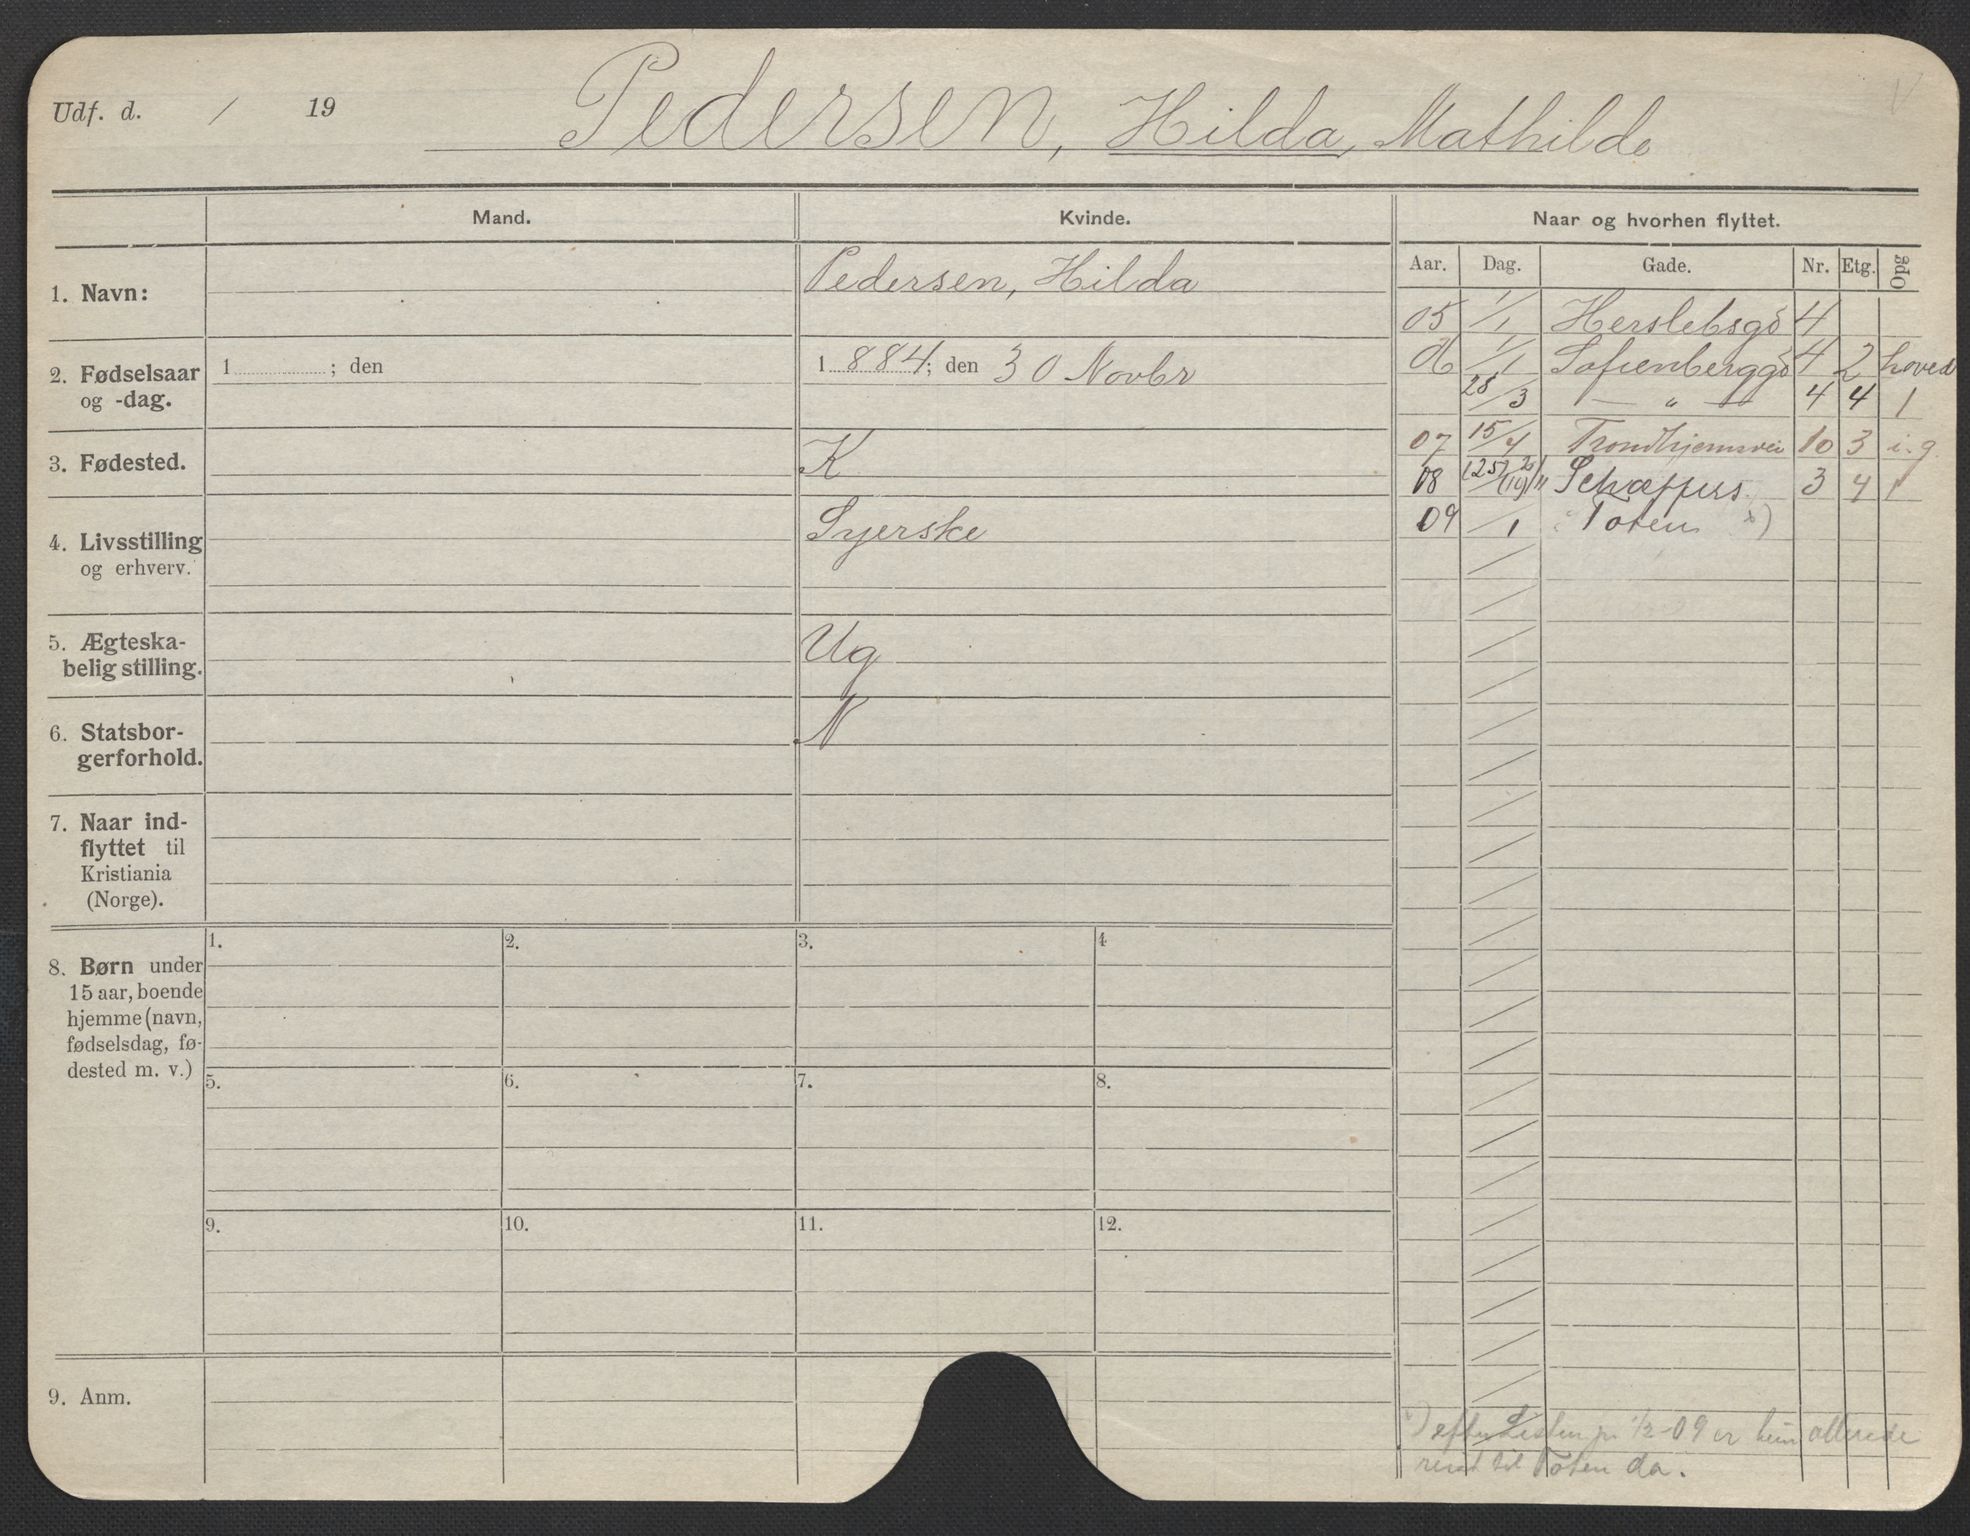 Udf. d. / 19
Pedersen, Hilda, Mathilde
Mand.
Kvinde.
Naar og hvorhen flyttet.
Aar. Dag. Gade. Nr. Etg. Opg
1. Navn:
Pedersen, Hilda
2. Fødselsaar
og -dag.
1 ; den
1 884; den 30 Novbr
3. Fødested.
K
4. Livsstilling
og erhverv.
Syerske
5. Ægteska-
belig stilling.
Ug
6. Statsbor-
gerforhold.
N
7. Naar ind-
flyttet til
Kristiania
(Norge).
8. Børn under
15 aar, boende
hjemme (navn,
fødselsdag, fø-
dested m. v.)
1. 2. 3. 4
5. 6. 7. 8.
9. 10. 11. 12.
9. Anm.
05 1/1 Herslebsgd 4
06 1/1 Sofienberggd 4 2 hoved
28/3 — " — 4 4 1
07 15/4 Trondhjemsvei 10 3 i. g.
08 Schæffers 3 4 1
09 /1 Toten x)
x) efter Listen pr 1/2-09 er hun allerede
reist til Toten da.